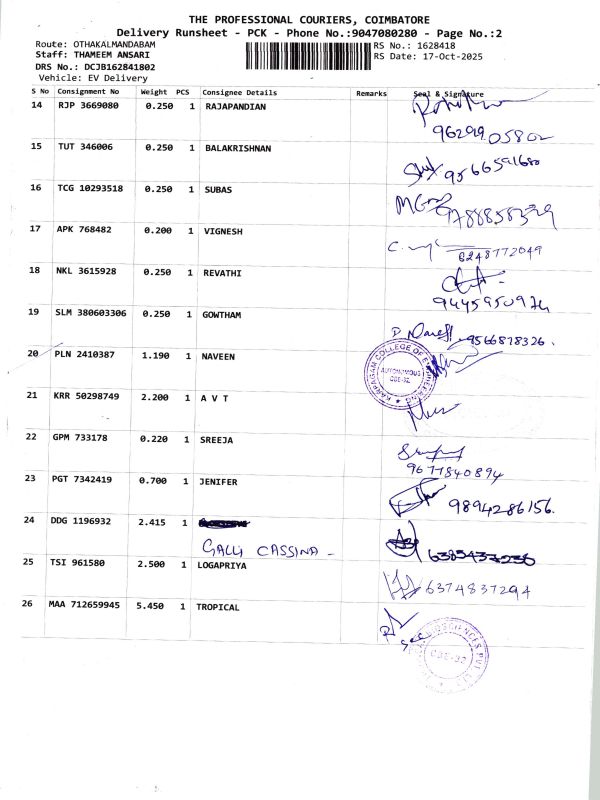 THE PROFESSIONAL COURIERS, COIMBATORE
Delivery Runsheet - PCK - Phone No.:9047080280 - Page No.:2
Route: OTHAKALMANDABAM RS No.: 1628418
Staff: THAMEEM ANSARI RS Date: 17-Oct-2025
DRS No.: DCJB162841802
Vehicle: EV Delivery
S No Consignment No Weight PCS Consignee Details Remarks Seal & Signature
14 RJP 3669080 0.250 1 RAJAPANDIAN
9629905802
15 TUT 346006 0.250 1 BALAKRISHNAN
9566591680
16 TCG 10293518 0.250 1 SUBAS
17 APK 768482 0.200 1 VIGNESH
6248772049
18 NKL 3615928 0.250 1 REVATHI
9445950974
19 SLM 380603306 0.250 1 GOWTHAM
9566878326.
20 PLN 2410387 1.190 1 NAVEEN
KARPAGAM COLLEGE OF ENGINEERING
AUTONOMOUS
CBE-32.
21 KRR 50298749 2.200 1 A V T
22 GPM 733178 0.220 1 SREEJA
9677840894
23 PGT 7342419 0.700 1 JENIFER
9894286156.
24 DDG 1196932 2.415 1
GALLI CASSINA -
25 TSI 961580 2.500 1 LOGAPRIYA
6374837294
26 MAA 712659945 5.450 1 TROPICAL
CBE-32